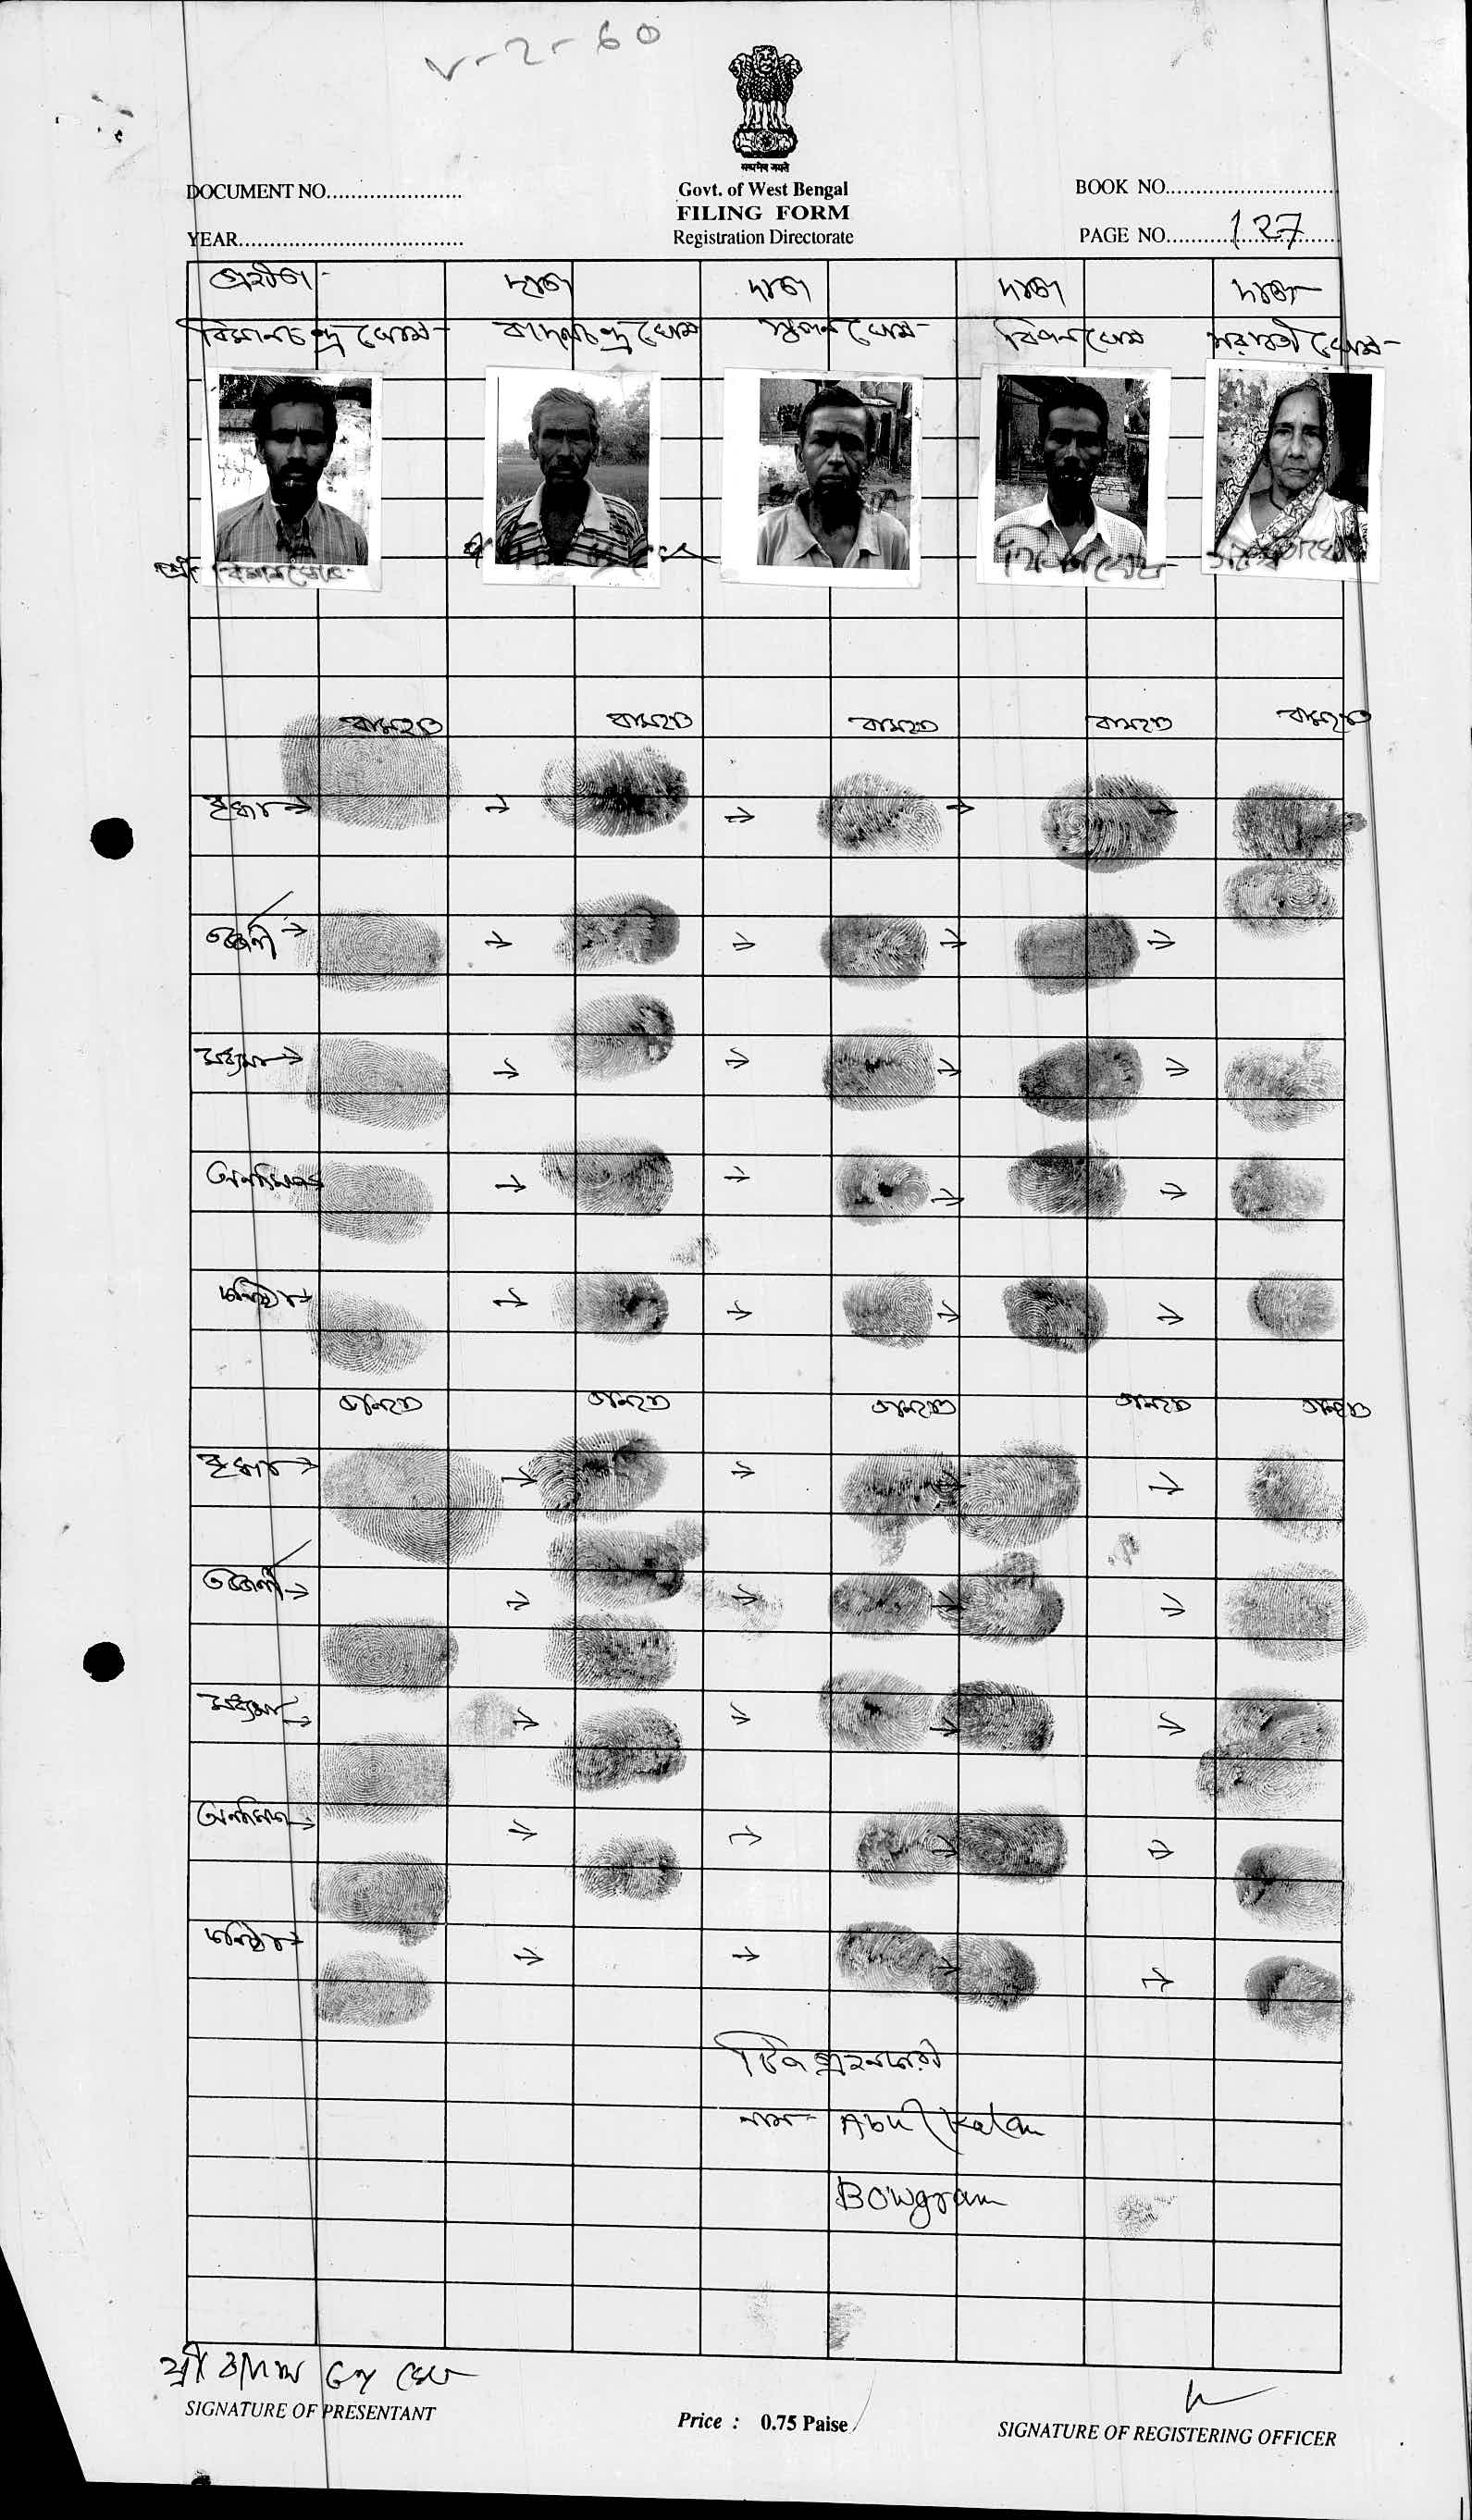 V-2-60
सत्यमेव जयते
DOCUMENT NO......................
Govt. of West Bengal
BOOK NO............................
FILING FORM
YEAR....................................
Registration Directorate
PAGE NO............127............
গ্রহীতা দাতা দাতা দাতা দাতা
বিমানচন্দ্র ঘোষ বাদলচন্দ্র ঘোষ স্বপন ঘোষ বিপদ ঘোষ সরস্বতী ঘোষ
শ্রী বিমান ঘোষ
সরস্বতী ঘোষ
বামহাত বামহাত বামহাত বামহাত বামহাত
বৃদ্ধা → → → → →
তর্জ্জনী → → → → →
মধ্যমা → → → → →
অনামিকা → → → →
কনিষ্ঠা → → → → →
ডানহাত ডানহাত ডানহাত ডানহাত ডানহাত
বৃদ্ধা → → → → →
তর্জ্জনী → → → → →
মধ্যমা → → → → →
অনামিকা → → → → →
কনিষ্ঠা → → → → →
টিপ গ্রহনকারী
নাম - Abul Kalam
Bowgram
শ্রী বাদল চন্দ্র ঘোষ
SIGNATURE OF PRESENTANT
Price : 0.75 Paise
SIGNATURE OF REGISTERING OFFICER